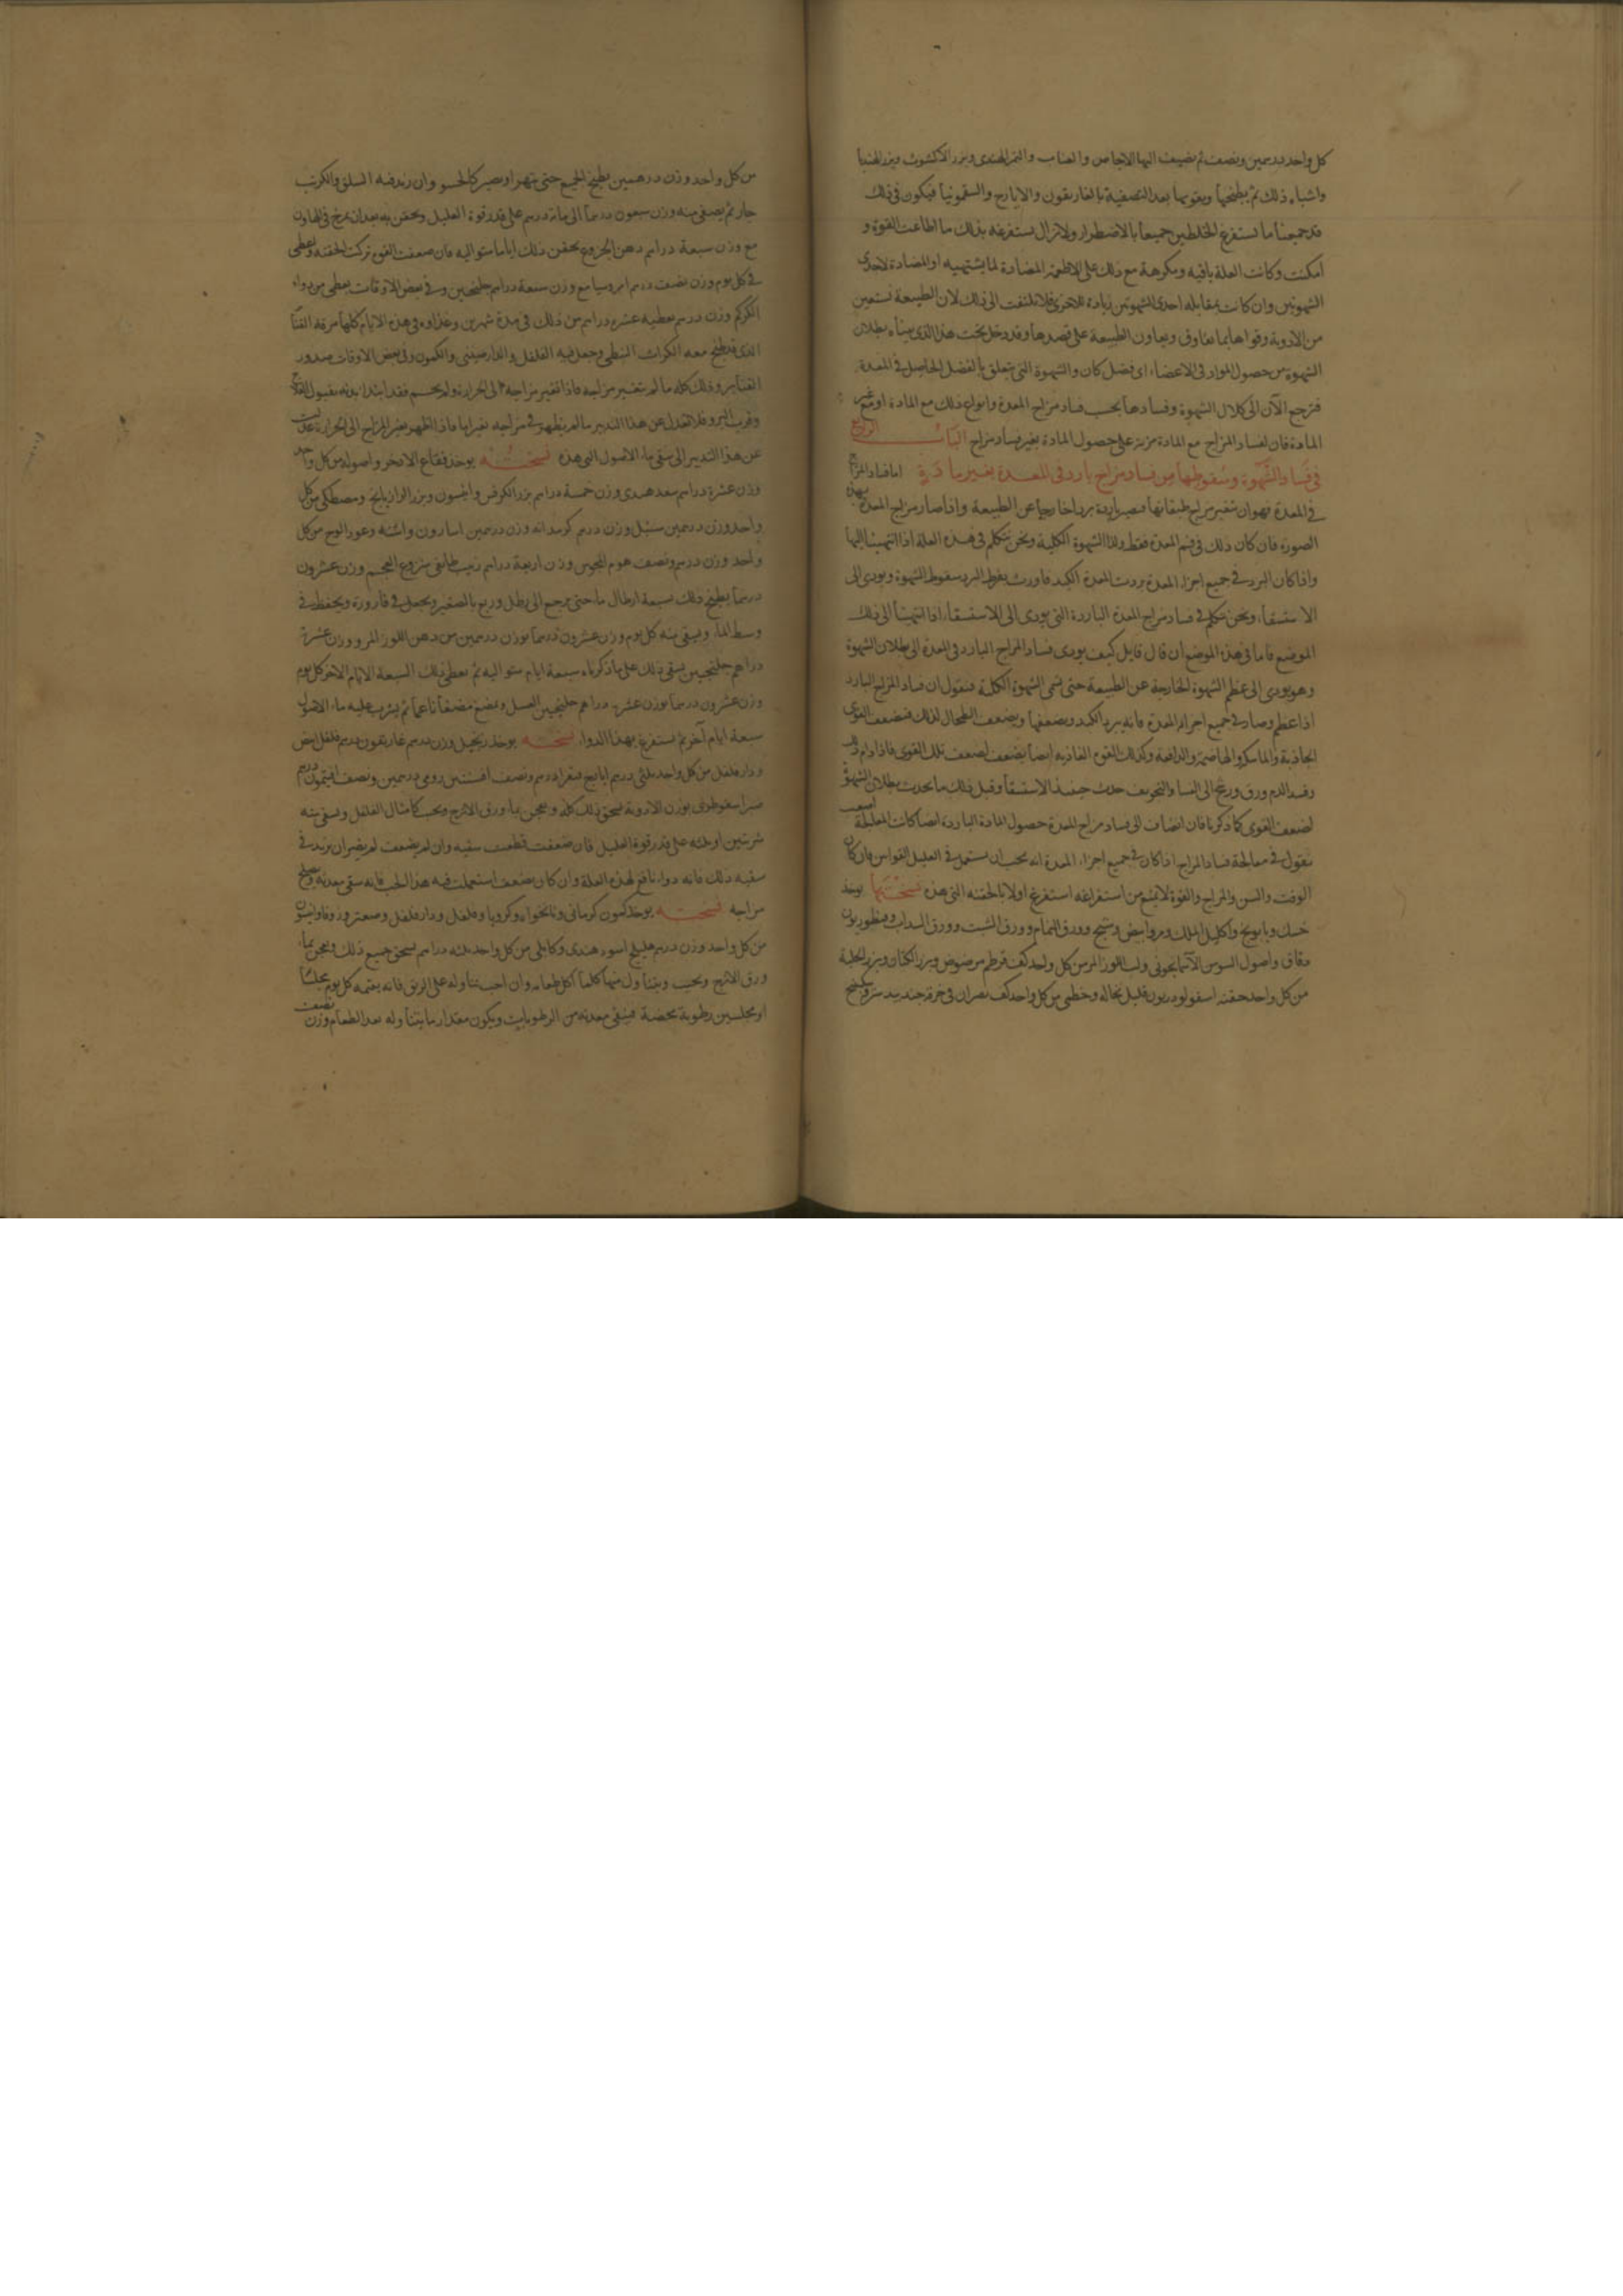 كل واحد درهمين ونصف ثم نضيف اليها الاجاص والعناب والتمر الهندى وبزر الاكشوث وبزر الهندبا
واشباه ذلك ثم يطبخها ويقويها بعد التصفية بالغاريقون والايارج والسقمونيا فيكون فى ذلك
قد جمعنا ما يستفرغ الخلطين جميعا بالاضطرار ولا نزال نستفرغه بذلك ما اطاعت القوة و
امكنت وكانت العلة باقيه ونكرهه مع ذلك على الاطعمة المضادة لما يشتهيه او المضادة لاحدى
الشهوتين وان كانت بمقابله احدى الشهوتين زيادة للاخرى فلا نلتفت الى ذلك لان الطبيعة تستعين
من الادوية وقواها بما يتعاون الطبيعة على قصدها وقد دخل تحت هذا الذى بيناه بطلان
الشهوة من حصول المواد فى الاعضاء اى فضل كان والشهوة التى يتعلق بالفضل الحاصل فى المعدة
فنرجع الآن الى كلال الشهوة وفسادها بحسب فساد مزاج المعدة وانواع ذلك مع المادة او مع غير
المادة فان لفساد المزاج مع المادة مزية على حصول المادة بغير فساد مزاج الباب الرابع
فى فساد الشهوة وسقوطها من فساد مزاج بارد فى المعدة بغير مادة اما فساد المزاج
فى المعدة فهو ان يتغير مزاج طبقاتها فيصير باردة بردا خارجا عن الطبيعة واذا صار مزاج المعدة بهذه
الصورة فان كان ذلك فى فم المعدة فقط ولد الشهوة الكلبية ونحن نتكلم فى هذه العلة اذا انتهينا اليها
واذا كان البرد فى جميع اجزاء المعدة بردت المعدة الكبد فاورث بفرط البرد سقوط الشهوة ويودى الى
الاستسقاء ونحن نتكلم فى فساد مزاج المعدة الباردة التى يودى الى الاستسقاء اذا انتهينا الى ذلك
الموضع فاما فى هذا الموضع ان قال قايل كيف يودى فساد المزاج البارد فى المعدة الى بطلان الشهوة
وهو يودى الى عظم الشهوة الخارجة عن الطبيعة حتى تسمى الشهوة الكلبية فنقول ان فساد المزاج البارد
اذا عظم وصار فى جميع اجزاء المعدة فانه يبرد الكبد ويضعفها ويضعف الطحال لذلك فتضعف القوى
الجاذبة والماسكة والهاضمة والدافعة وكذلك القوة الغاذيه ايضا يضعف لضعف تلك القوى فاذا دام ذلك
وفسد الدم ورق ورشح الى الصفاء والتجويف حدث حينئذ الاستسقاء وقبل ذلك ما يحدث بطلان الشهوة
لضعف القوى كما ذكرنا فان انضاف الى فساد مزاج المعدة حصول المادة الباردة ايضا كانت المعالجة اصعب
نقول فى معالجة فساد المزاج اذا كان فى جميع اجزاء المعدة انه يجب ان يستعمل فى العليل القوانين فان كان
الوقت والسن والمزاج والقوة لا يمنع من استفراغه استفرغ اولا بالحقنه التى هذه نسختها يوخذ
خسك وبابونج واكليل الملك ومرو ابيض وشيح وورق النمام وورق الشبت وورق السداب وقنطوريون
دقاق واصول السوس الآسمانجونى ولب اللوز المر من كل واحد كف قرطم مرضوض وبزر الكتان وبزر الحلبة
من كل واحد حفنه اسقولوقندريون قليل نخاله وخطمى من كل واحد كف يصران فى خرقة جندبيدستر وسكبينج
من كل واحد وزن درهمين يطبخ الجميع حتى يتهرا ويصير كالحسو وان زيد فيه السلق والكرنب
جاز ثم يصفى منه وزن سبعون درهما الى مائة درهم على قدر قوة العليل ويحقن به بعد ان يمرخ فى الهاون
مع وزن سبعة دراهم دهن الخروع يحقن ذلك اياما متواليه فان ضعفت القوى تركت الحقنة ويعطى
فى كل يوم وزن نصف درهم امروسيا مع وزن سبعة دراهم جلنجبين وفى بعض الاوقات يعطى من دواء
الكركم وزن درهم يعطيه عشرة دراهم من ذلك فى مدة شهرين وغذاوه فى هذه الايام كلها مرقة القنابر
الذى قد طبخ معه الكراث النبطى وجعل فيه الفلفل والدارصينى والكمون وفى بعض الاوقات صدور
القنابر وذلك كله ما لم يتغير مزاجه فاذا تغير مزاجه الى الحرارة ولم يحسم فقد ابتدا بدنه بقبول العلاج
وقرب البرو فلا تعدل عن هذا التدبير ما لم يظهر فى مزاجه تغيرا ما فاذا ظهر تغير المزاج الى الحرارة عدلت
عن هذا التدبير الى سقى ماء الاصول التى هذه نسخته يوخذ فقاع الاذخر واصوله من كل واحد
وزن عشرة دراهم سعد هندى وزن خمسة دراهم بزر الكرفس وانيسون وبزر الرازيانج ومصطكى من كل
واحد وزن درهمين سنبل وزن درهم كرمدانه وزن درهمين اسارون واشنه وعود الوج من كل
واحد وزن درهم ونصف هوم المجوس وزن اربعة دراهم زبيب طايفى منزوع العجم وزن عشرون
درهما يطبخ ذلك بسبعة ارطال ماء حتى يرجع الى رطل وربع بالصغير ويجعل فى قارورة ويحفظ فى
وسط الماء ويسقى منه كل يوم وزن عشرون درهما بوزن درهمين من دهن اللوز المر ووزن عشرة
دراهم جلنجبين يسقى ذلك على ما ذكرناه سبعة ايام متواليه ثم يعطى تلك السبعة الايام الاخر كل يوم
وزن عشرون درهما بوزن عشرة دراهم جلنجبين العسل ويمضغ مضغا ناعما ثم يشرب عليه ماء الاصول
سبعة ايام آخر ثم يستفرغ بهذا الدواء نسخته يوخذ زنجبيل وزن درهم غاريقون درهم فلفل ابيض
ودار فلفل من كل واحد ثلثى درهم ايارج فيقرا درهم ونصف افسنتين رومى درهمين ونصف افتيمون درهم
صبر اسقوطرى بوزن الادوية يسحق ذلك كله ويعجن بماء ورق الاترج ويحبب كامثال الفلفل ويسقى منه
شربتين او ثلثه على قدر قوة العليل فان ضعفت قطعت سقيه وان لم يضعف لم يضر ان يزيد فى
سقيه ذلك فانه دواء نافع لهذه العلة وان كان ضعف استعملت فيه هذا الحب فانه ينقى معدته ويصلح
مزاجه نسخته يوخذ كمون كرمانى ونانخواه وكرويا وفلفل ودار فلفل وصعتر وزوفا وانيسون
من كل واحد وزن درهم هليلج اسود هندى وكابلى من كل واحد ثلثه دراهم يسحق جميع ذلك ويعجن بماء
ورق الاترج ويحبب ويتناول منها كلما اكل طعامه وان احب تناوله على الريق فانه يقيمه كل يوم مجلسا
او مجلسين رطوبة محضة فينقى معدته من الرطوبات ويكون مقدار ما يتناوله بعد الطعام وزن نصف